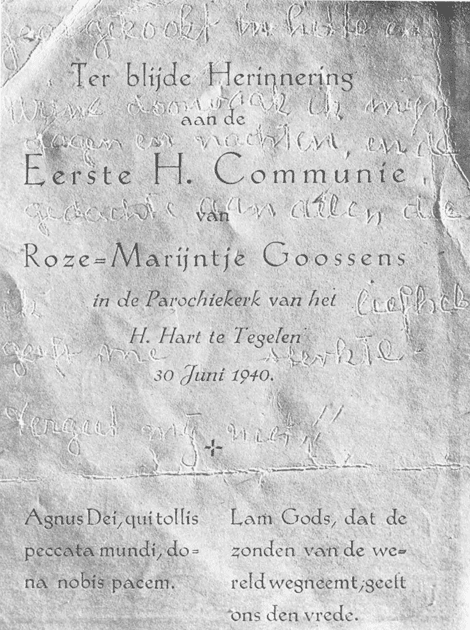 gekookt in hitte en
Ter blijde Herinnering
ik mijn
aan de
dagen en nachten, en de
Eerste H. Communie
gedachte aan allen die
van
Roze=Marijntje Goossens
in de Parochiekerk van het
ik liefheb
H. Hart te Tegelen
geeft me sterkte
30 Juni 1940.
Vergeet mij niet!!
Agnus Dei, qui tollis
peccata mundi, do=
na nobis pacem.
Lam Gods, dat de
zonden van de we=
reld wegneemt, geeft
ons den vrede.